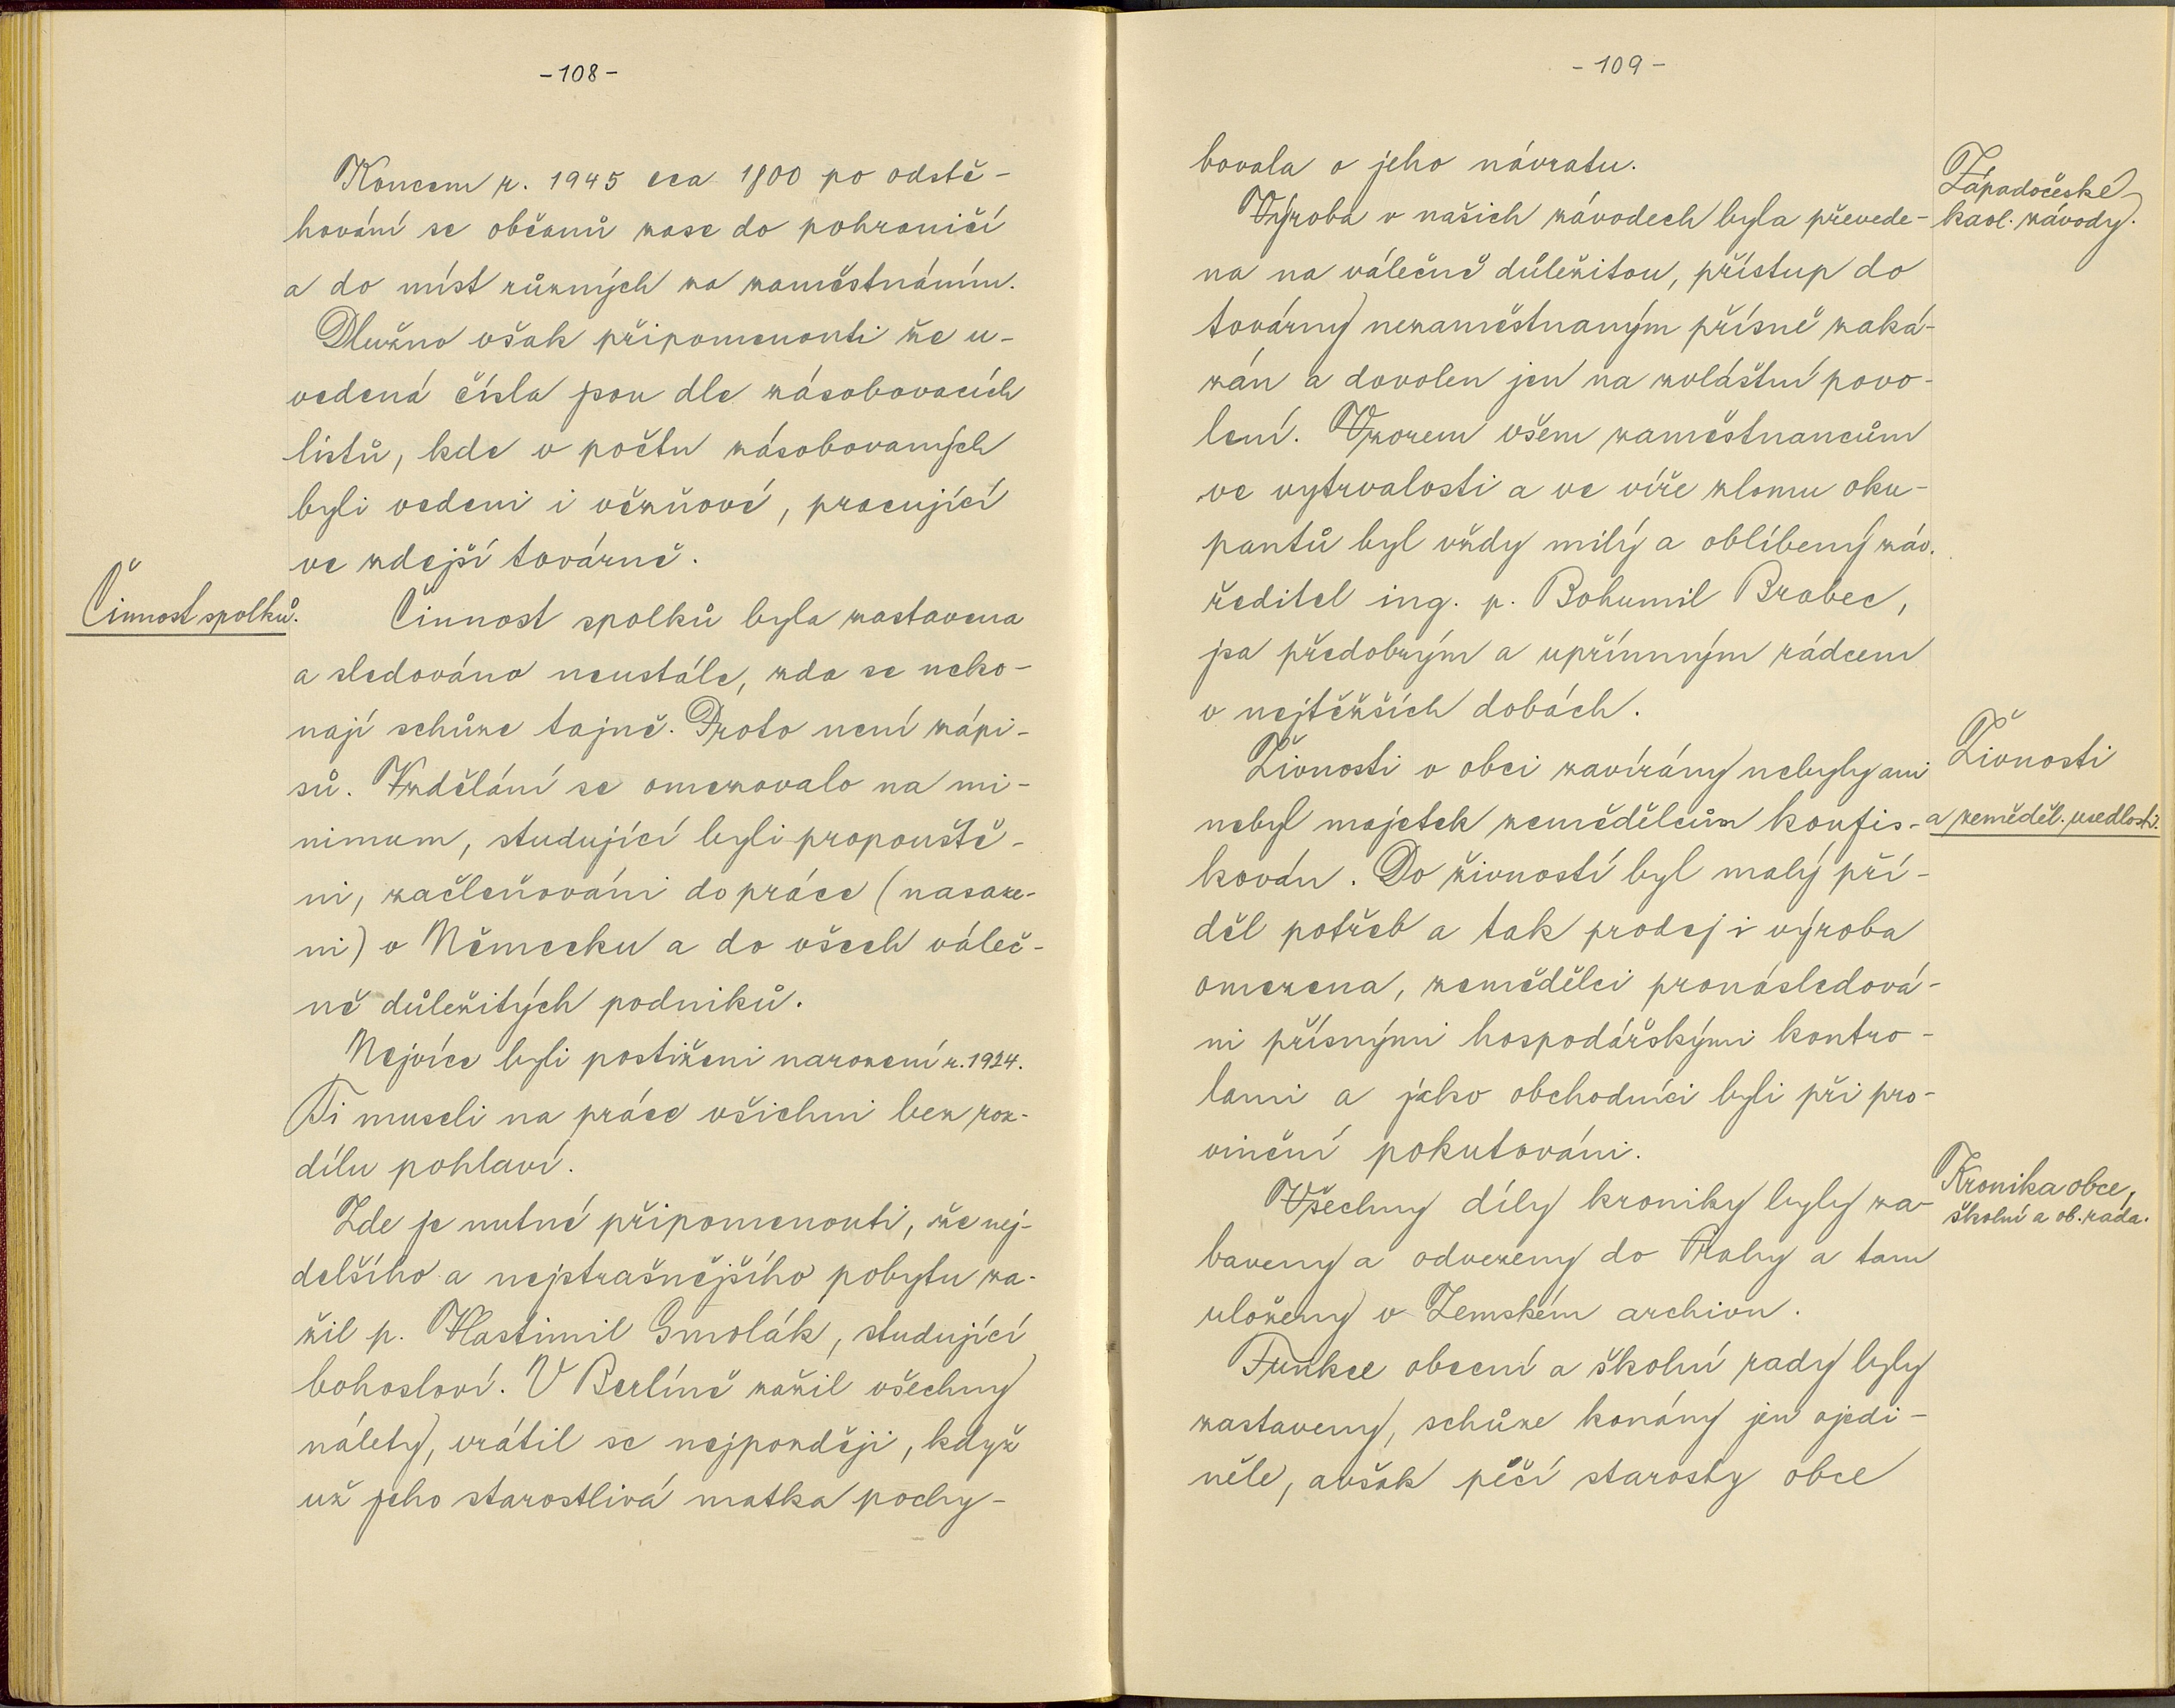 -108-
Koncem r. 1945 cca 1800 po odstě-
hování se občanů zase do pohraničí
a do míst různých za zaměstnáním.
Dlužno však připomenouti že u-
vedená čísla jsou dle zásobovacích
listů, kde v počtu zásobovaných
byli vedeni i vězňové, pracující
ve zdejší továrně.
Činnost spolků.
Činnost spolků byla zastavena
a sledováno neustále, zda se neko-
nají schůze tajně. Proto není zápi-
sů. Vzdělání se omezovalo na mi-
nimum, studující byli propouště-
ni, začleňováni do práce (nasaze-
ni) v Německu a do všech váleč-
ně důležitých podniků.
Nejvíce byli postiženi narození r. 1924.
Ti museli na práce všichni bez roz-
dílu pohlaví.
Zde je nutné připomenouti, že nej-
delšího a nejstrašnějšího pobytu za-
žil p. Vlastimil Smolák, studující
bohosloví. V Berlíně zažil všechny
nálety, vrátil se nejpozději, když
už jeho starostlivá matka pochy-
-109-
bovala o jeho návratu.
Západočeské
kaol. závody.
Výroba v našich závodech byla převede-
na na válečně důležitou, přístup do
továrny nezaměstnaným přísně zaká-
zán a dovolen jen na zvláštní povo-
lení. Vzorem všem zaměstnancům
ve vytrvalosti a ve víře zlomu oku-
pantů byl vždy milý a oblíbený záv.
ředitel ing. p. Bohumil Brabec,
jsa předobrým a upřímným rádcem
v nejtěžších dobách.
Živnosti
a zeměděl. usedlosti.
Živnosti v obci zavírány nebyly ani
nebyl majetek zemědělcům konfis-
kován. Do živností byl malý pří-
děl potřeb a tak prodej i výroba
omezena, zemědělci pronásledová-
ni přísnými hospodářskými kontro-
lami a jako obchodníci byli při pro-
vinění pokutováni.
Kronika obce,
školní a ob. rada.
Všechny díly kroniky byly za-
baveny a odvezeny do Prahy a tam
uloženy v Zemském archivu.
Funkce obecní a školní rady byly
zastaveny, schůze konány jen ojedi-
něle, avšak péčí starosty obce